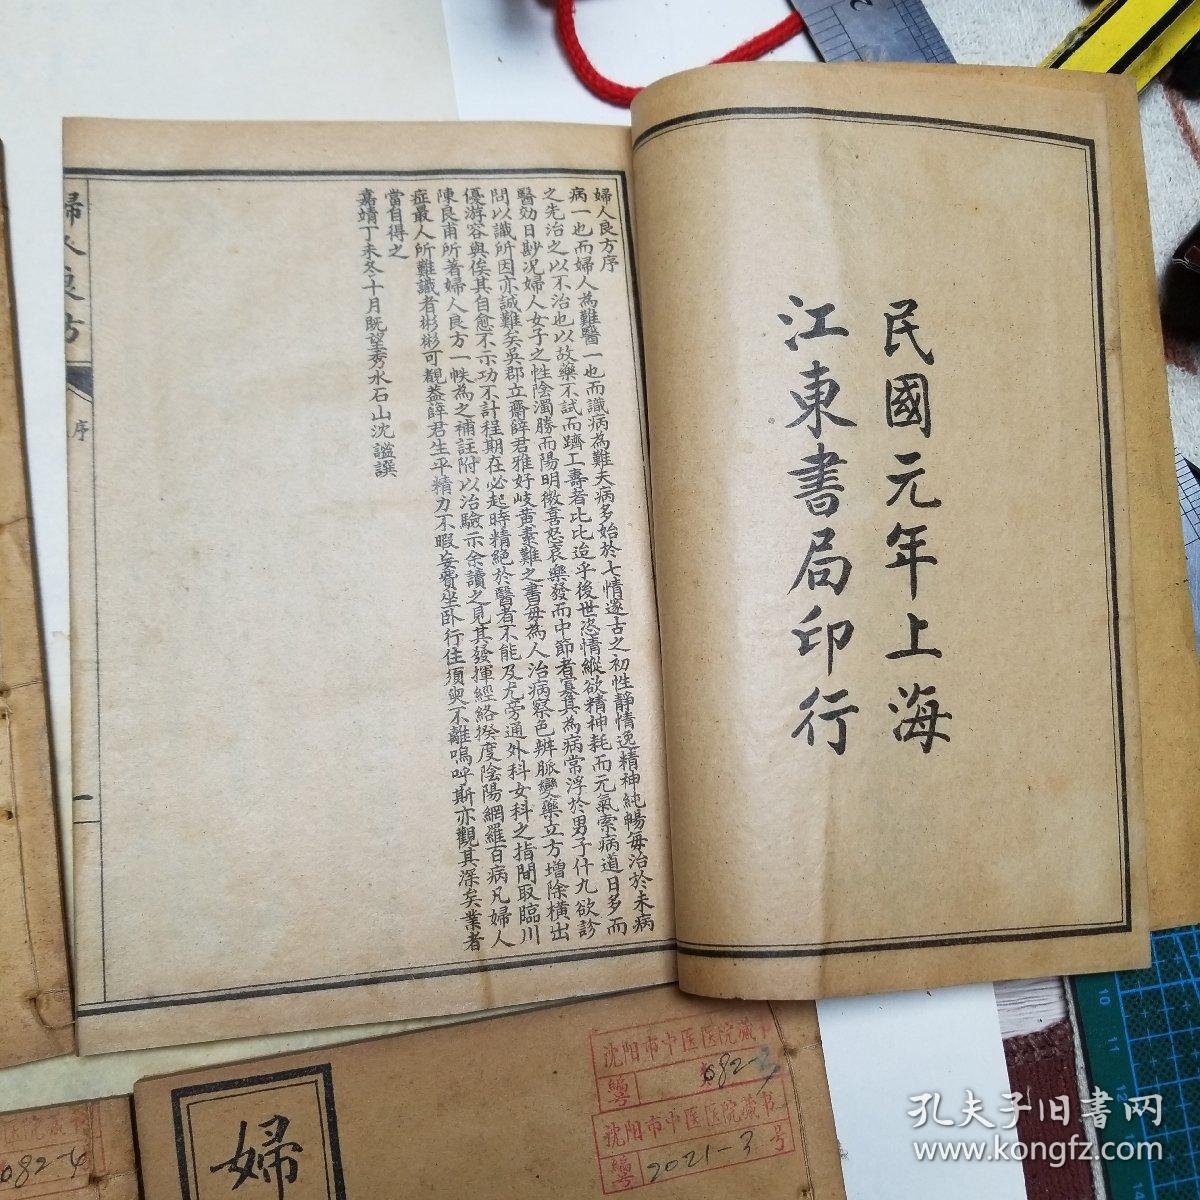 民國元年上海
江東書局印行
婦人良方序
病一也而婦人為難醫一也而識病為難夫病多始於七情邃古之初性靜情逸精神純暢每治於未病
之先治之以不治也以故藥不試而躋工壽者比比迨乎後世恣情縱欲精神耗而元氣索病道日多而
醫効日尠况婦人女子之性陰濁勝而陽明微喜怒哀樂發而中節者寡其為病常浮於男子什九欲診
問以識所因亦誠難矣吳郡立齋薛君雅好岐黃素難之書每為人治病察色辨脈變藥立方增除橫出
優游容與俟其自愈不示功不計程期在必起時精絕於醫者不能及尤旁通外科女科之指間取臨川
陳良甫所著婦人良方一帙為之補註附以治驗示余讀之見其發揮經絡揆度陰陽網羅百病凡婦人
症最人所難識者彬彬可覩蓋薛君生平精力不暇妄費坐卧行住須臾不離嗚呼斯亦觀其深矣業者
當自得之
嘉靖丁未冬十月既望秀水石山沈謐譔
婦人良方
序
一
沈阳市中医医院藏书
編
082-3
沈阳市中医医院藏书
編 2021-3 号
医院藏书
082-4
婦
孔夫子旧书网
www.kongfz.com